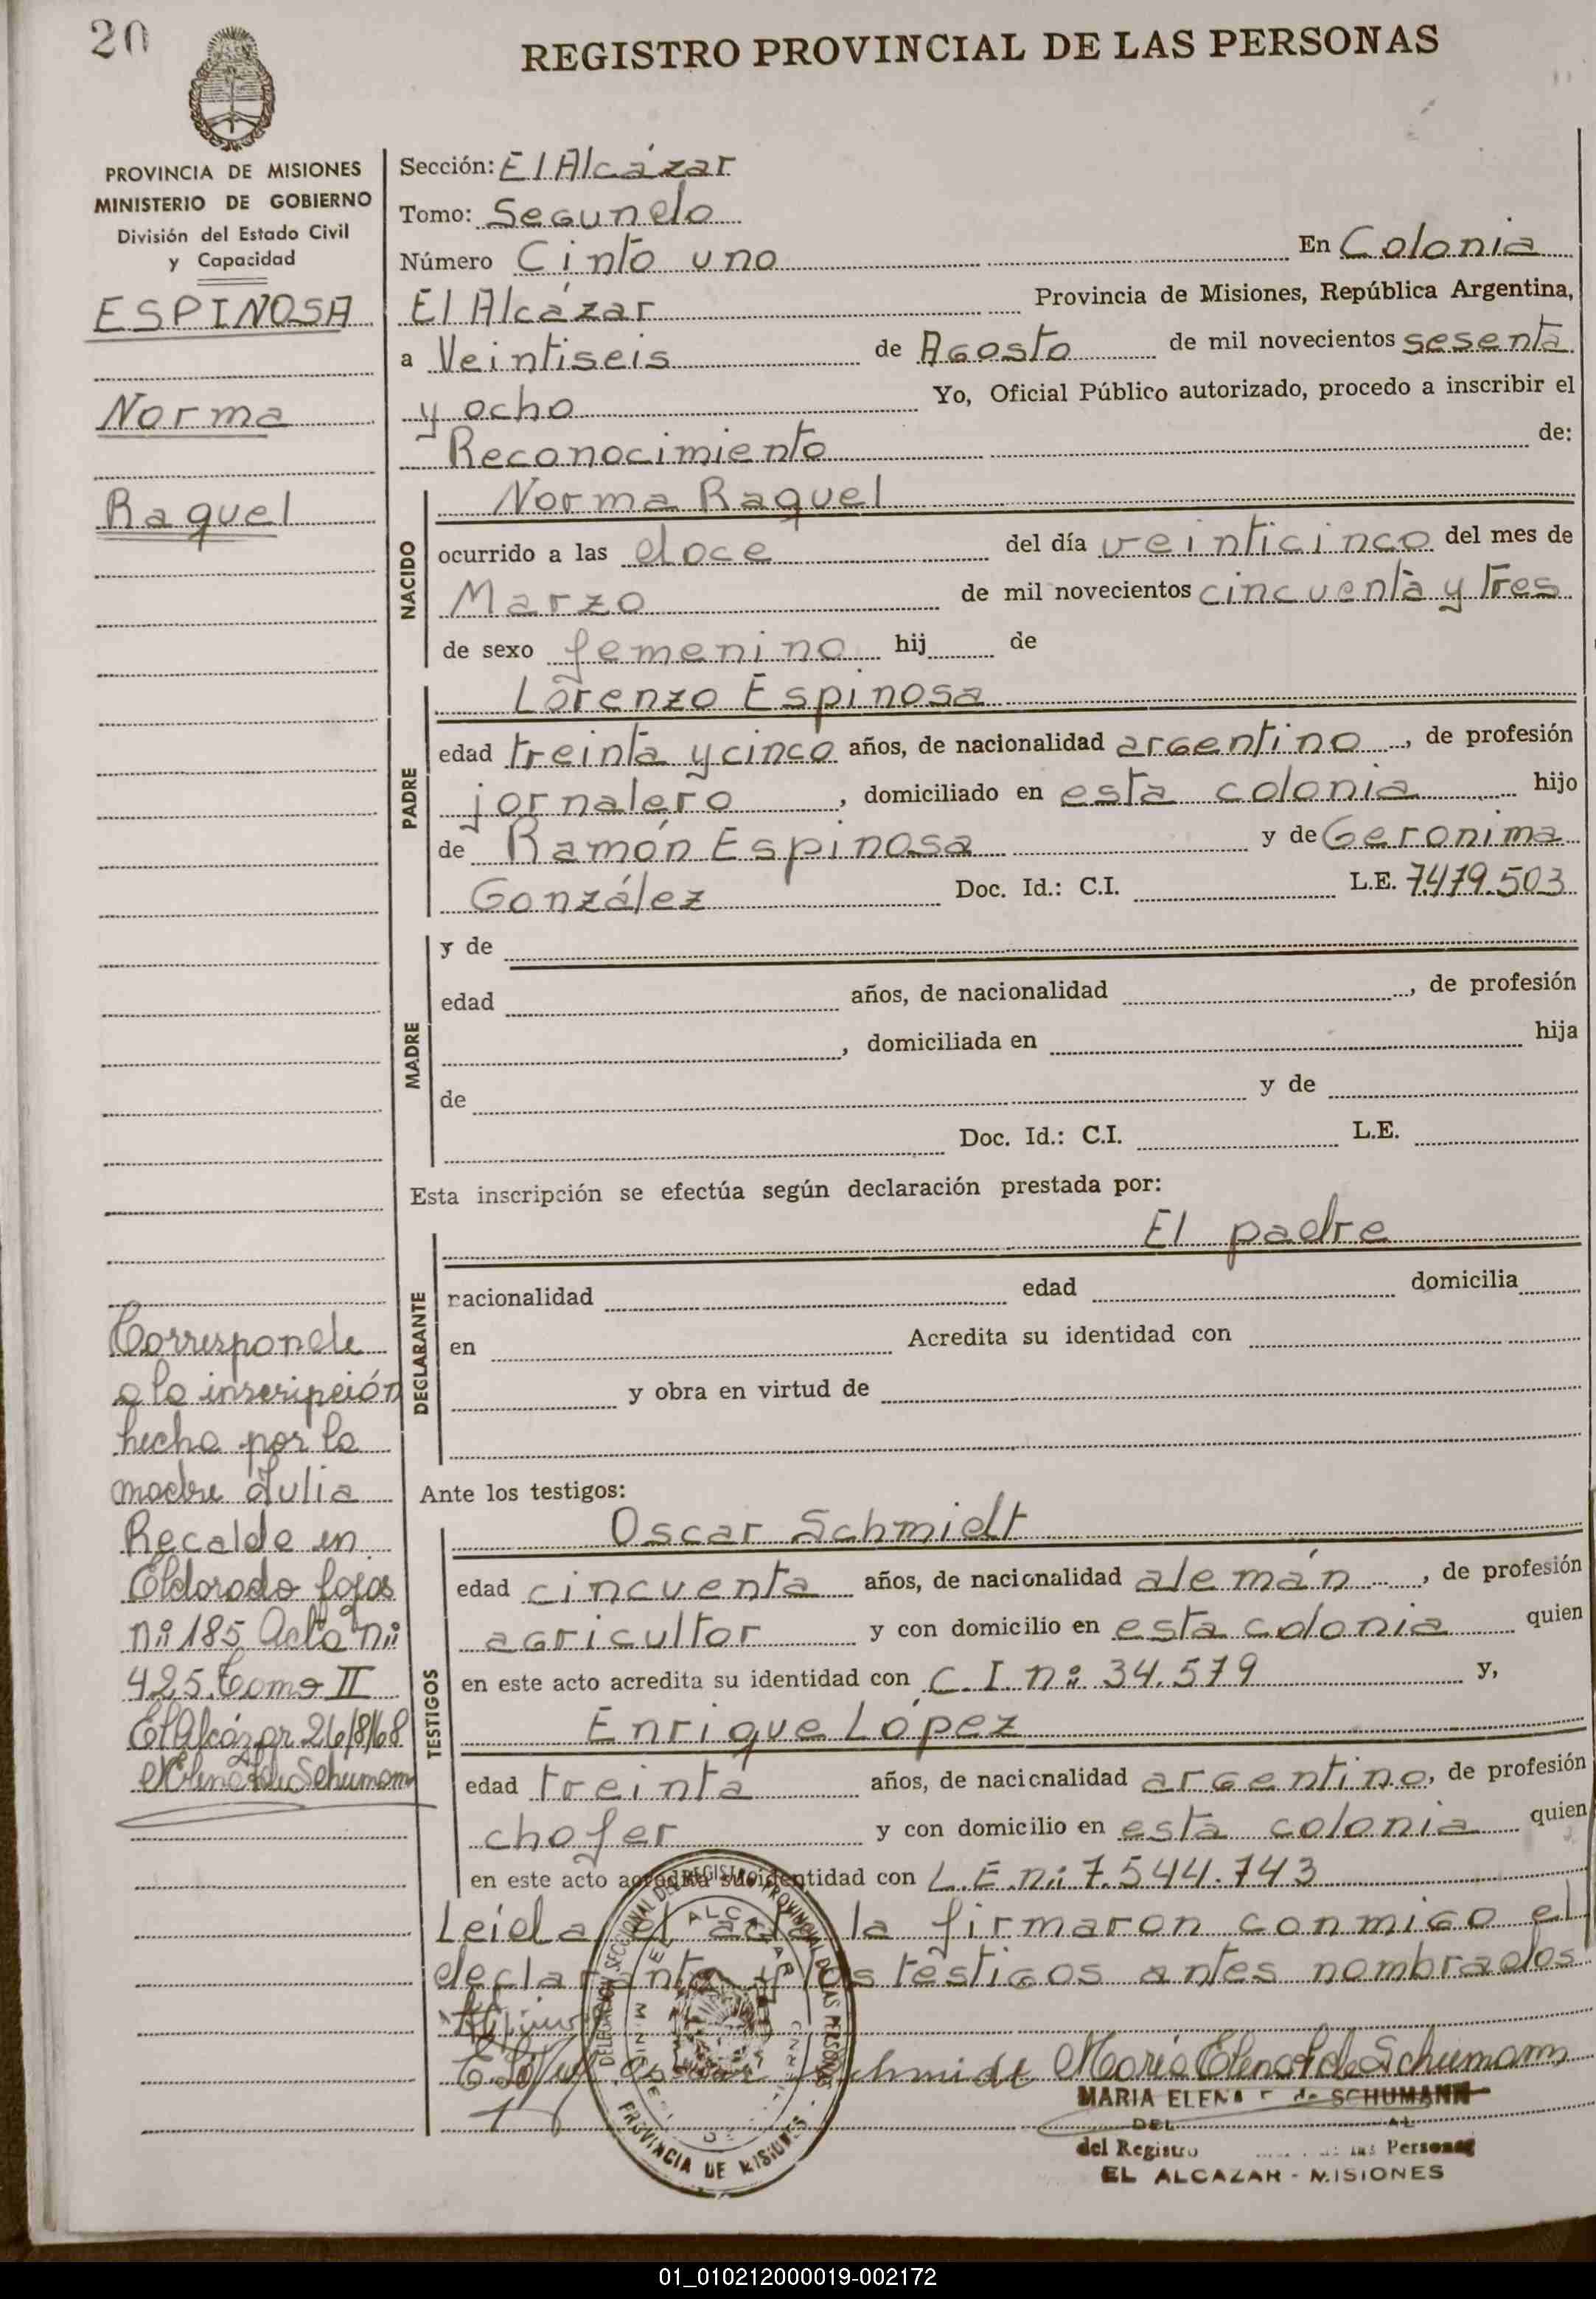 20
REGISTRO PROVINCIAL DE LAS PERSONAS
PROVINCIA DE MISIONES
MINISTERIO DE GOBIERNO
División del Estado Civil
y Capacidad
ESPINOSA
Norma
Raquel
Corresponde
a la inscripción
hecha por la
madre Julia
Recalde en
Eldorado fojas
nº 185 Acta nº
425. Tomo II
El Alcázar 26/8/68
Sección: El Alcázar
Tomo: Segundo
Número Cinto uno En Colonia
El Alcázar Provincia de Misiones, República Argentina,
a Veintiseis de Agosto de mil novecientos sesenta
y ocho Yo, Oficial Público autorizado, procedo a inscribir el
Reconocimiento de:
NACIDO
Norma Raquel
ocurrido a las doce del día veinticinco del mes de
Marzo de mil novecientos cincuenta y tres
de sexo femenino hij de
PADRE
Lorenzo Espinosa
edad treinta y cinco años, de nacionalidad argentino, de profesión
jornalero, domiciliado en esta colonia hijo
de Ramón Espinosa y de Geronima
González Doc. Id.: C.I. L.E. 7.479.503
MADRE
y de
edad años, de nacionalidad , de profesión
, domiciliada en hija
de y de
Doc. Id.: C.I. L.E.
Esta inscripción se efectúa según declaración prestada por:
DECLARANTE
El padre
nacionalidad edad domicilia
en Acredita su identidad con
y obra en virtud de
Ante los testigos:
TESTIGOS
Oscar Schmidt
edad cincuenta años, de nacionalidad alemán, de profesión
agricultor y con domicilio en esta colonia quien
en este acto acredita su identidad con C.I. nº 34.579 y,
Enrique López
edad treinta años, de nacionalidad argentino, de profesión
chofer y con domicilio en esta colonia quien
en este acto acredita su identidad con L.E. nº 7.544.743
Leida el acta la firmaron conmigo el
declarante y los testigos antes nombrados
Oscar Schmidt María Elena F de Schumann
MARIA ELENA F. de SCHUMANN
del Registro de las Personas
EL ALCAZAR - MISIONES
DELEGACION SECCIONAL DEL REGISTRO PROVINCIAL DE LAS PERSONAS
EL ALCAZAR
PROVINCIA DE MISIONES
01_010212000019-002172